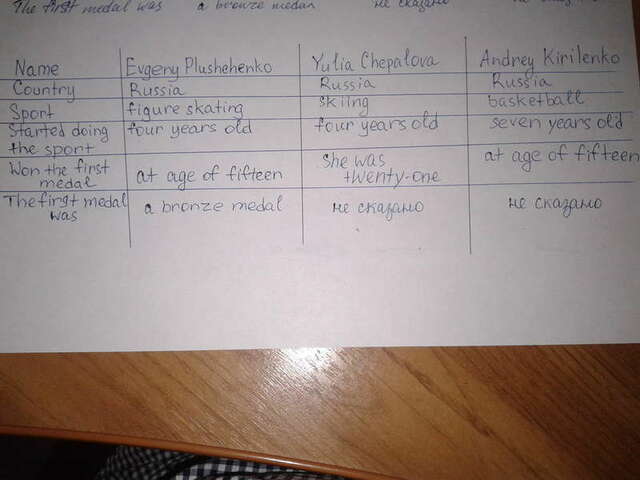 The first medal was a bronze medal не сказано
Name Evgeny Plushehenko Yulia Chepalova Andrey Kirilenko
Country Russia Russia Russia
Sport figure skating skiing basketball
Started doing four years old four years old seven years old
the sport
Won the first at age of fifteen she was at age of fifteen
medal twenty-one
The first medal a bronze medal не сказано не сказано
was